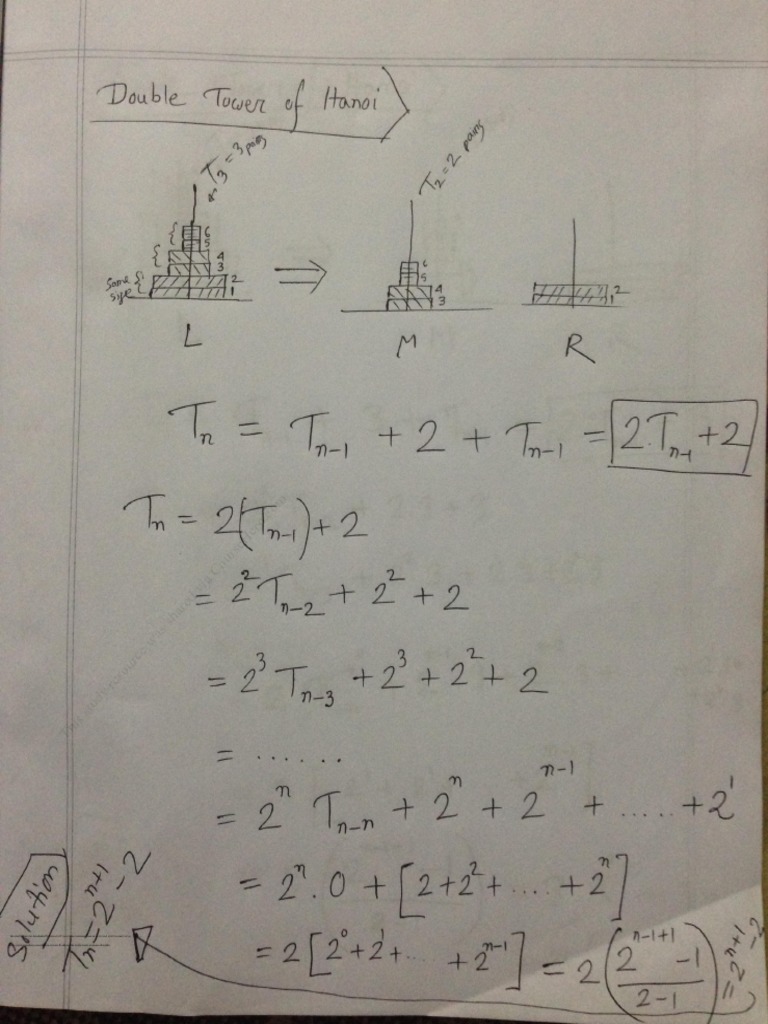 Double Tower of Hanoi
T3 = 3 pairs
T2 = 2 pairs
{ 6
5
{ 4
3
Same size { 2
1
⇒
6
5
4
3
2
1
L
M
R
Tₙ = Tₙ₋₁ + 2 + Tₙ₋₁ = 2.Tₙ₋₁ + 2
Tₙ = 2(Tₙ₋₁) + 2
= 2² Tₙ₋₂ + 2² + 2
= 2³ Tₙ₋₃ + 2³ + 2² + 2
= ......
= 2ⁿ Tₙ₋ₙ + 2ⁿ + 2ⁿ⁻¹ + ..... + 2¹
= 2ⁿ . 0 + [2 + 2² + .... + 2ⁿ]
= 2 [2⁰ + 2¹ + .... + 2ⁿ⁻¹] = 2 ((2ⁿ⁻¹⁺¹ - 1)/(2-1)) = 2ⁿ⁺¹ - 2
Solution
Tₙ = 2ⁿ⁺¹ - 2